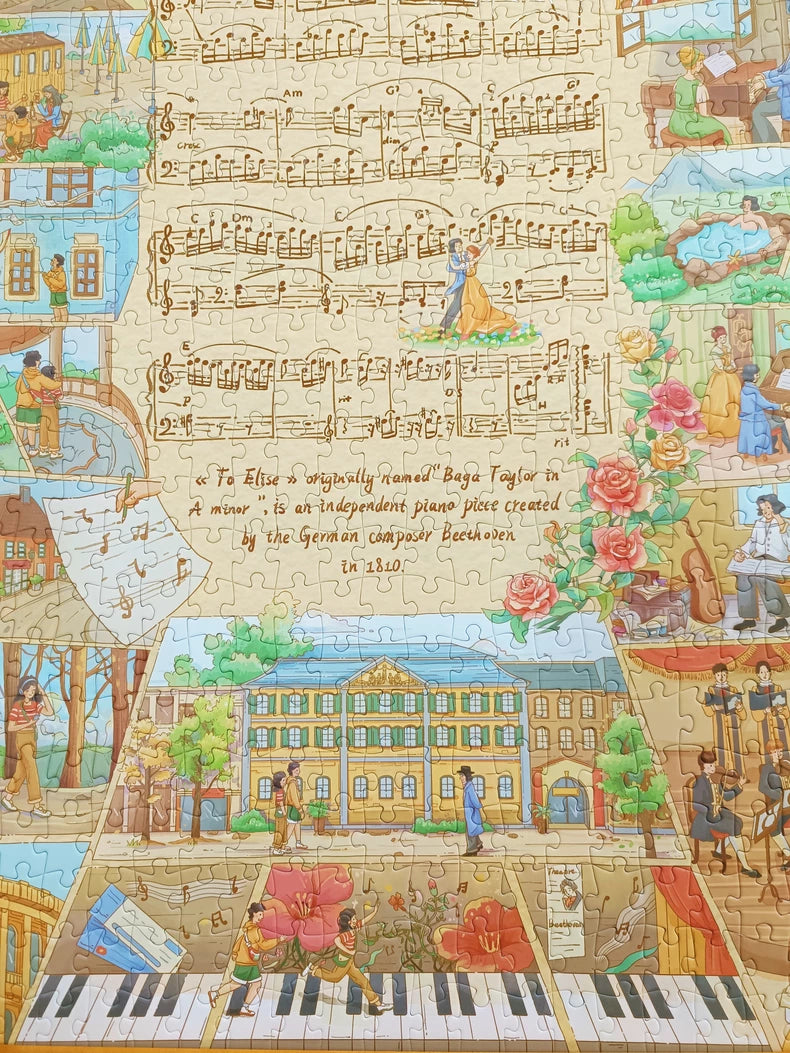 Am G⁷ C G⁷
cresc dim p
C Dm C G⁷ C
E
p rit
H
rit
« To Elise » originally named "Baga Taylor in
A minor", is an independent piano piece created
by the German composer Beethoven
in 1810.
Theatre
Beethoven